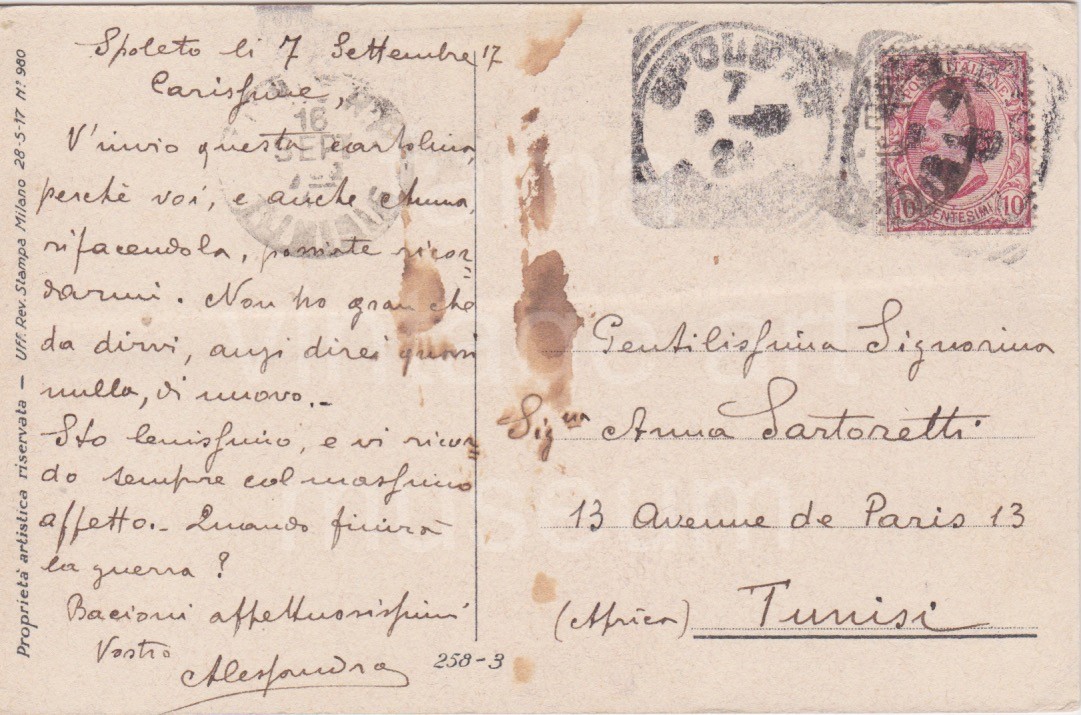 Proprietà artistica riservata — Uff. Rev. Stampa Milano 28-5-17 N.° 980
Spoleto li 7 Settembre 17
Carissime,
V'invio questa cartolina,
perchè voi, e anche Anna,
rifacendola, possiate ricor=
darmi. Non ho gran che
da dirvi, anzi direi quasi
nulla, di nuovo.-
Sto benissimo, e vi ricor=
do sempre col massimo
affetto.- Quando finirà
la guerra?
Bacioni affettuosissimi
Vostra
Alessandra
258-3
16
SETT
SPOLETO
7
24
POSTE ITALIANE
10 CENTESIMI 10
Gentilissima Signorina
Sig.na Anna Sartoretti
13 Avenue de Paris 13
(Africa) Tunisi
vintage art
museum